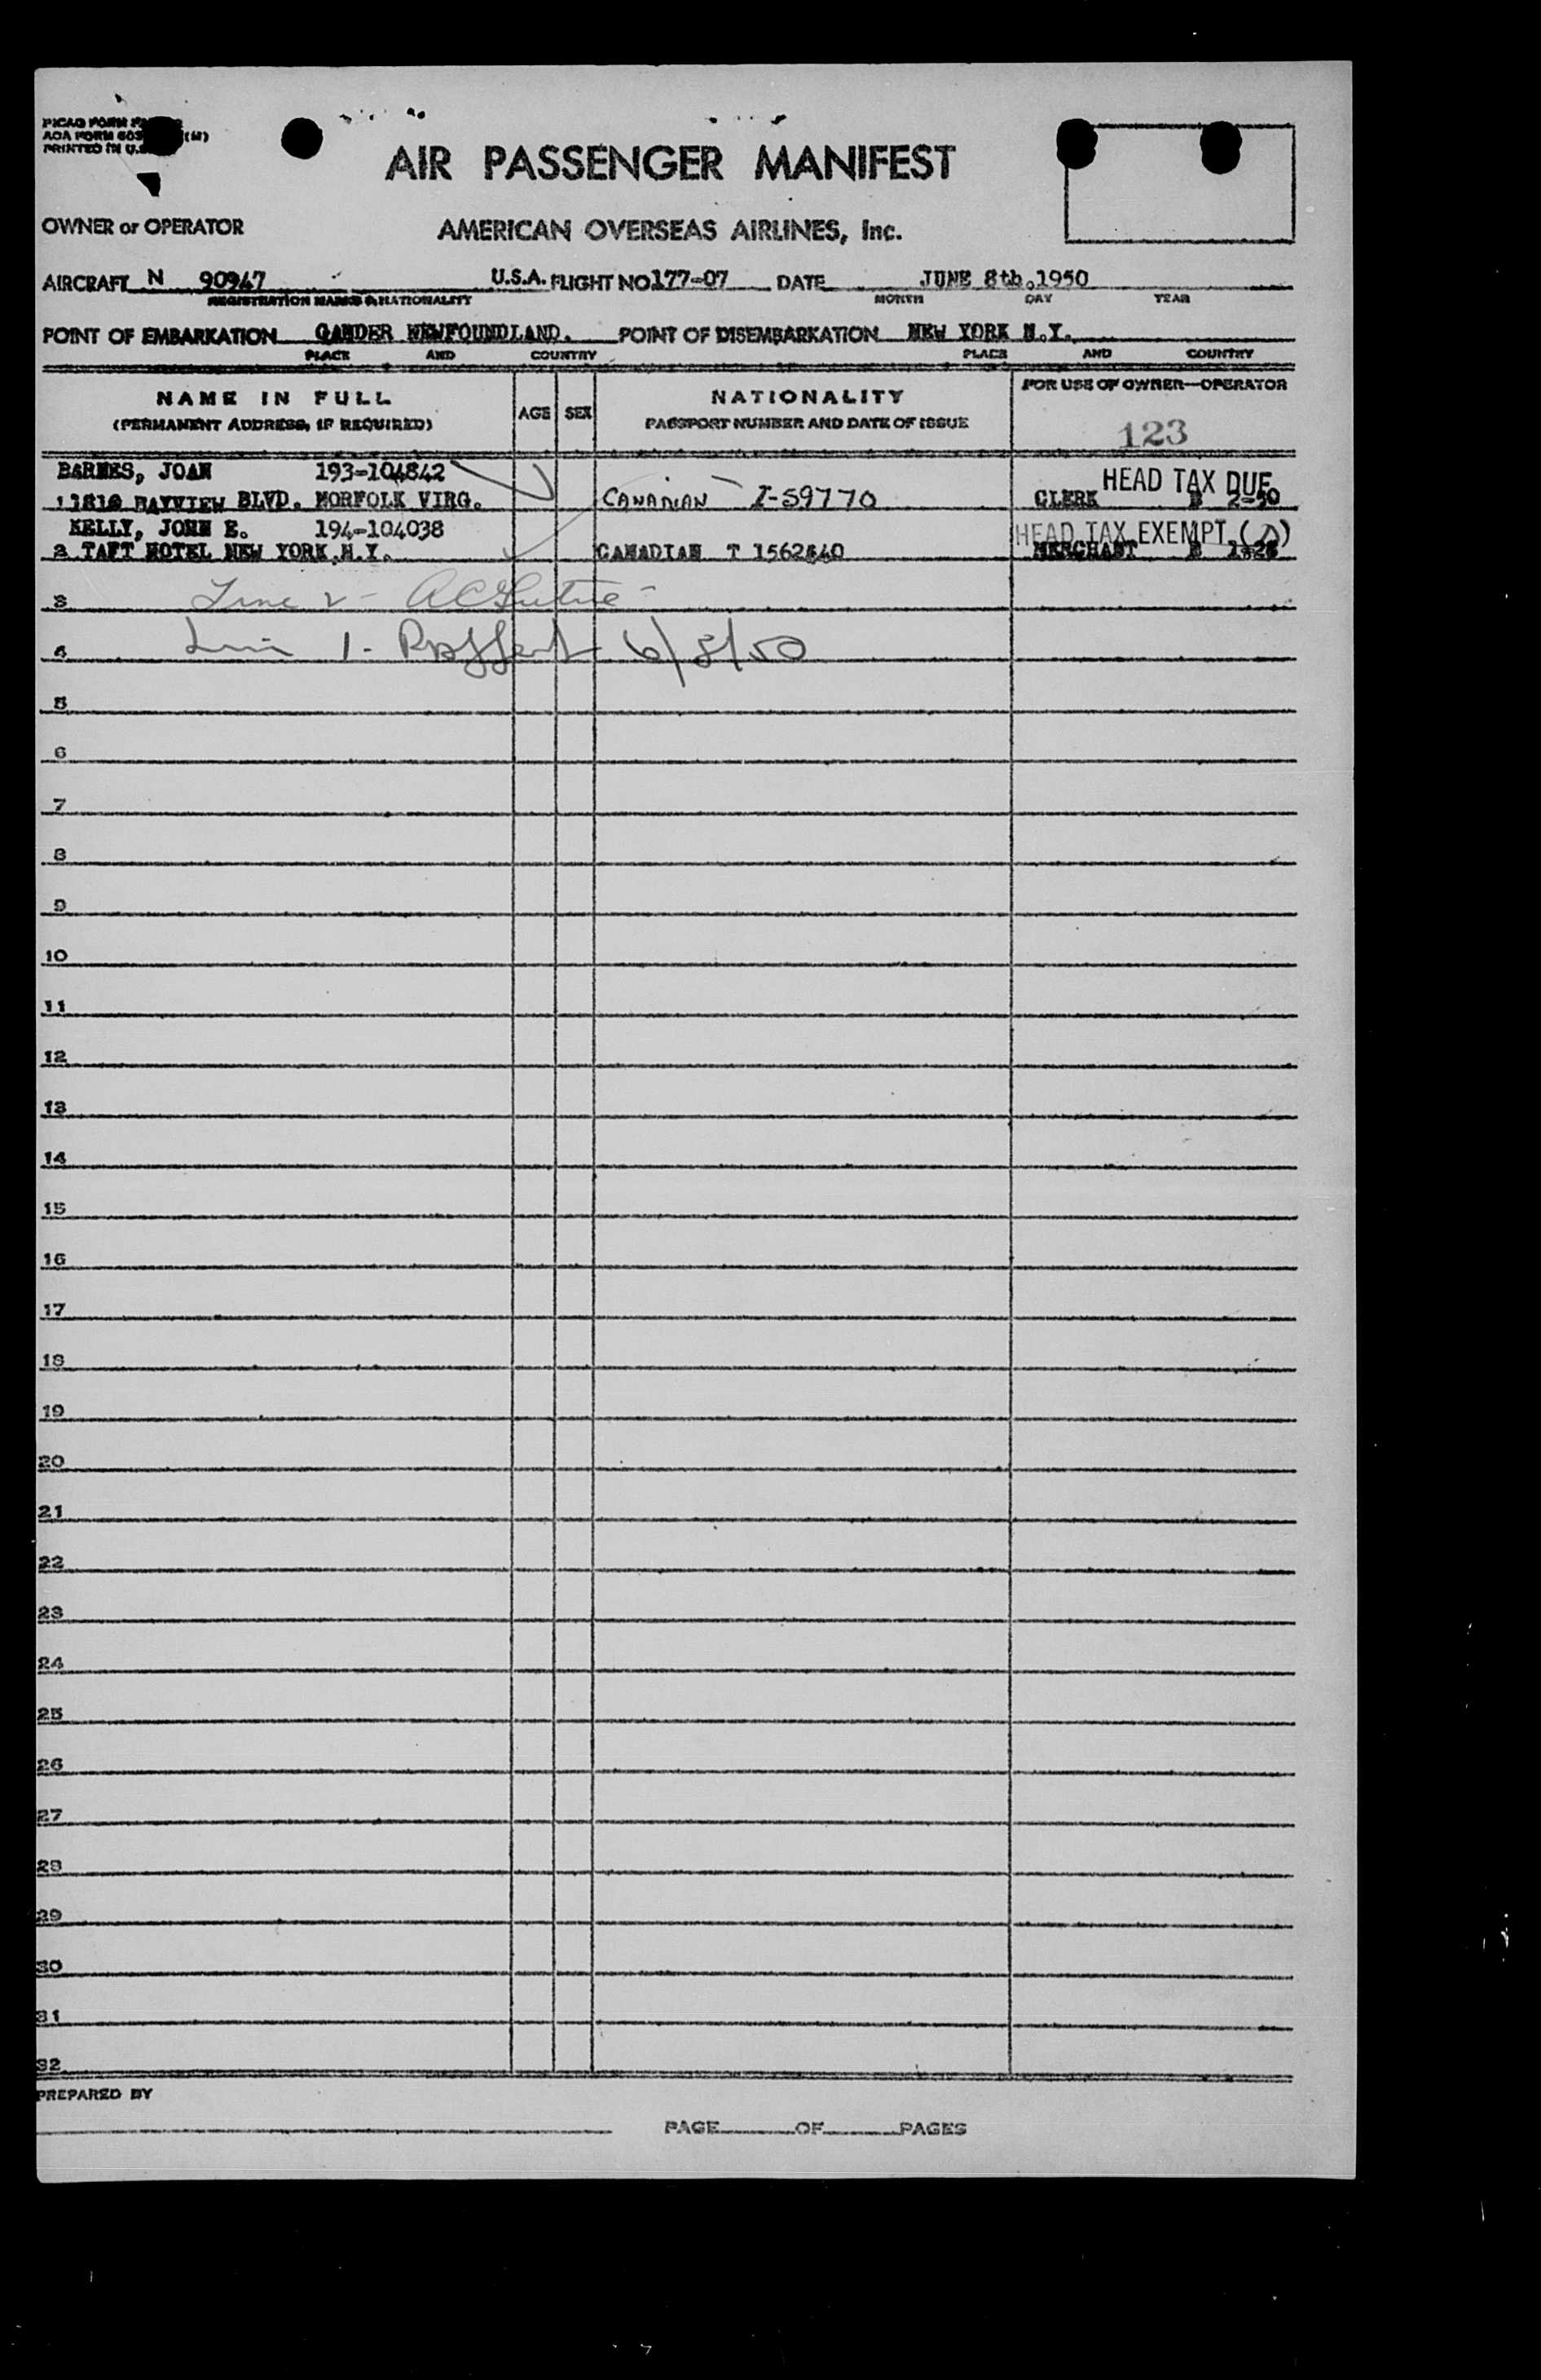 PICAO FORM
AOA FORM 603 (M)
PRINTED IN U.S.
AIR PASSENGER MANIFEST
OWNER or OPERATOR AMERICAN OVERSEAS AIRLINES, Inc.
AIRCRAFT N 90947 U.S.A. FLIGHT NO 177-07 DATE JUNE 8th.1950
REGISTRATION MARKS & NATIONALITY MONTH DAY YEAR
POINT OF EMBARKATION GANDER NEWFOUNDLAND. POINT OF DISEMBARKATION NEW YORK N.Y.
PLACE AND COUNTRY PLACE AND COUNTRY
NAME IN FULL AGE SEX NATIONALITY FOR USE OF OWNER—OPERATOR
(PERMANENT ADDRESS, IF REQUIRED) PASSPORT NUMBER AND DATE OF ISSUE 123
BARNES, JOAN 193-104842 HEAD TAX DUE
BAYVIEW BLVD. NORFOLK VIRG. CANADIAN I-59770 CLERK 2-50
KELLY, JOHN E. 194-104038 HEAD TAX EXEMPT
2 TAFT HOTEL NEW YORK.N.Y. CANADIAN T MERCHANT
3 Line 2 -
4 Line 1 - 6/8/50
5
6
7
8
9
10
11
12
13
14
15
16
17
18
19
20
21
22
23
24
25
26
27
28
29
30
31
32
PREPARED BY
PAGE OF PAGES